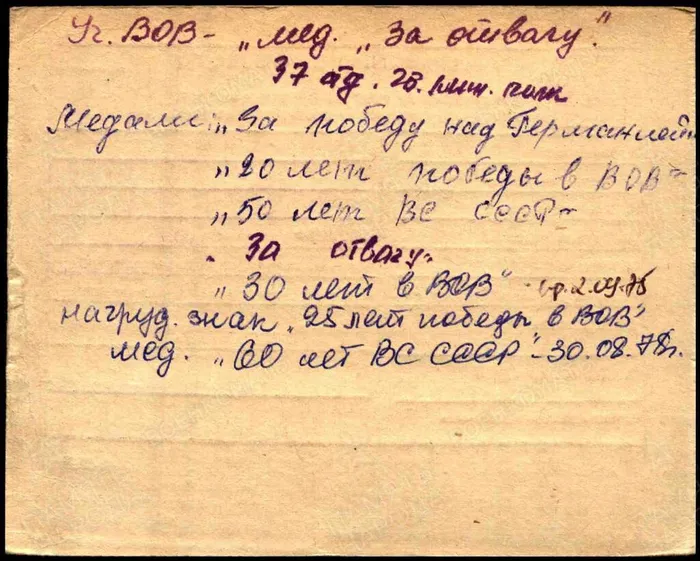 Уч. ВОВ - "мед. "За отвагу".
37 отд. полк
Медали: "За победу над Германией"
"20 лет победы в ВОВ"
"50 лет ВС СССР"
"За отвагу"
"30 лет в ВОВ" вр. 2.09.75
нагруд. знак "25 лет победы в ВОВ"
мед. "60 лет ВС СССР" - 30.08.78г.